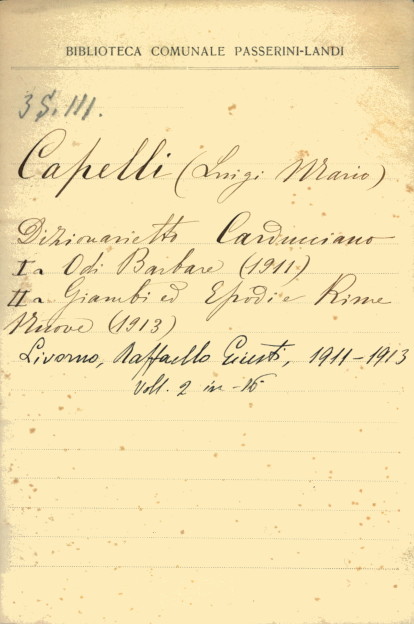 BIBLIOTECA COMUNALE PASSERINI-LANDI
3 S. III.
Capelli (Luigi Mario)
Dizionarietto Carducciano
I a Odi Barbare (1911)
II a Giambi ed Epodi e Rime
Nuove (1913)
Livorno, Raffaello Giusti, 1911-1913
Voll. 2 in-16